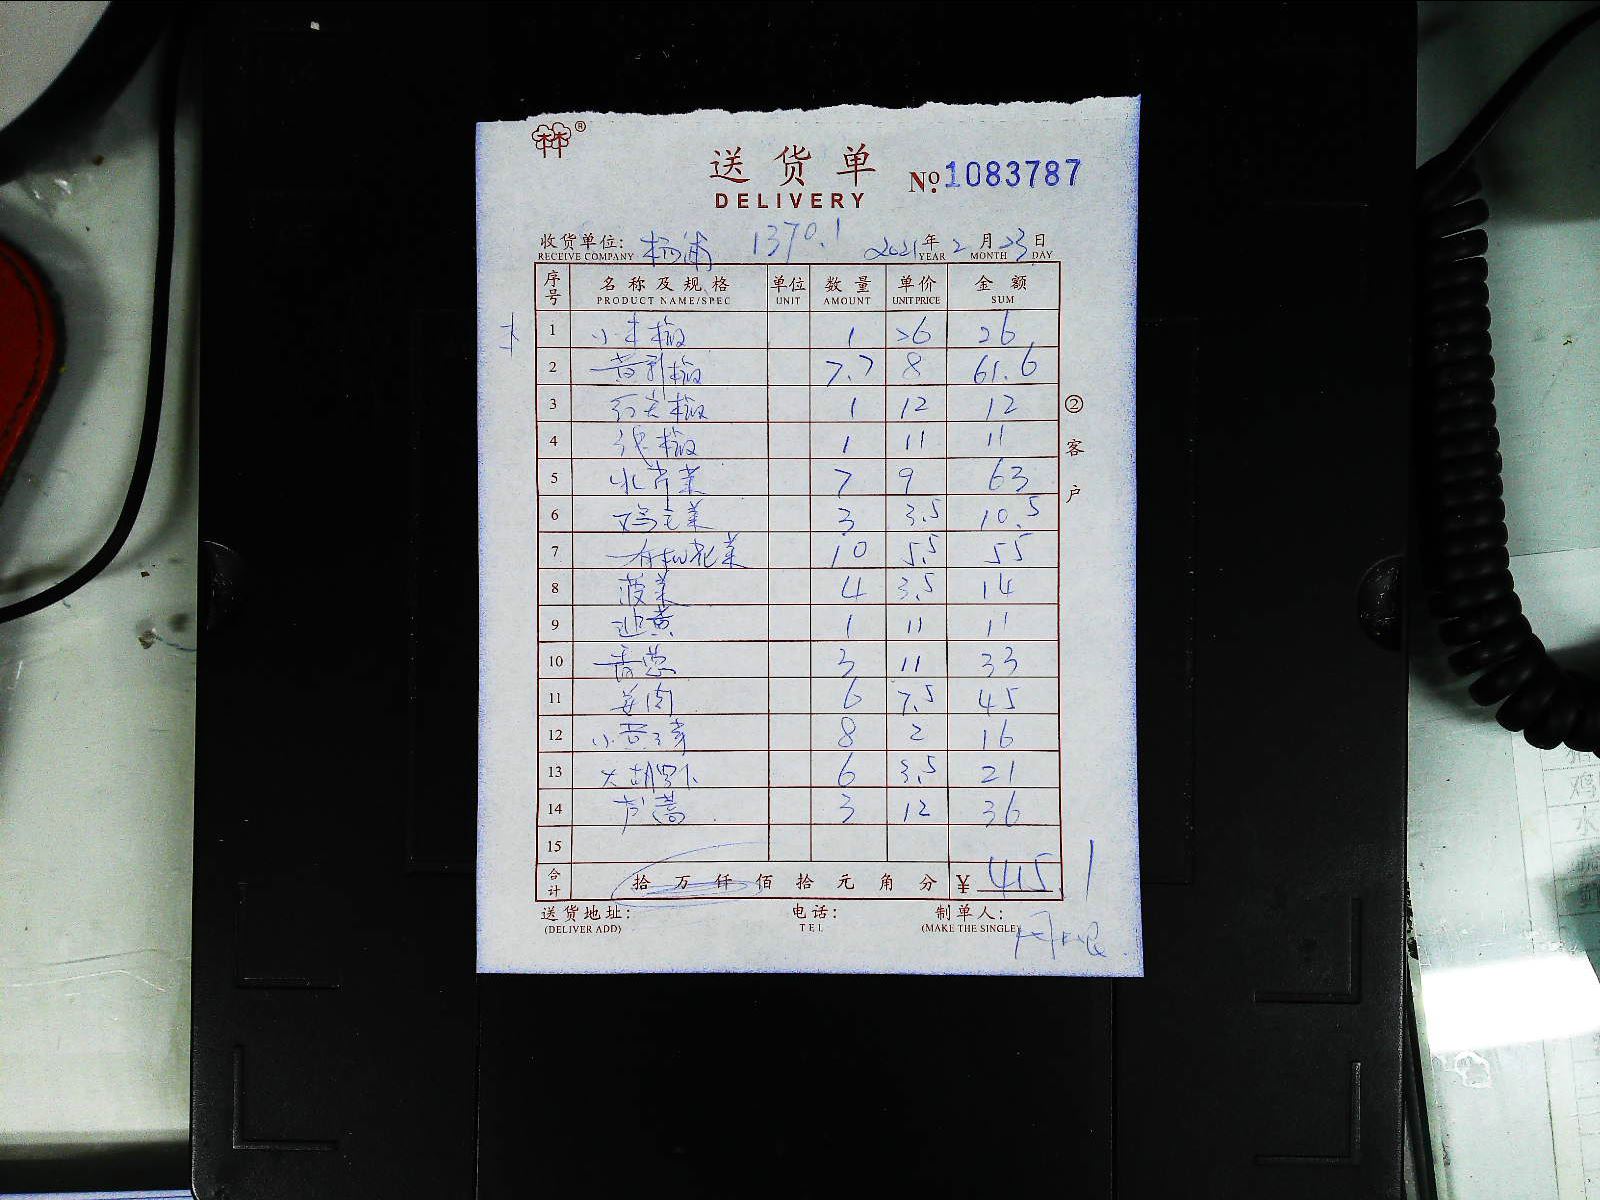 林 ®
送货单
DELIVERY
No. 1083787
收货单位: 杨浦 1370.1 2021年2月23日
RECEIVE COMPANY YEAR MONTH DAY
序号 名称及规格 单位 数量 单价 金额
PRODUCT NAME/SPEC UNIT AMOUNT UNIT PRICE SUM
1 小米椒 1 26 26
2 黄彩椒 7.7 8 61.6
3 红尖椒 1 12 12
4 线椒 1 11 11
5 水芹菜 7 9 63
6 鸡毛菜 3 3.5 10.5
7 有机花菜 10 5.5 55
8 菠菜 4 3.5 14
9 1 11 11
10 香葱 3 11 33
11 姜肉 6 7.5 45
12 小黄芽 8 2 16
13 大胡罗卜 6 3.5 21
14 芦蒿 3 12 36
15
合计 拾万仟佰拾元角分 ¥415.1
送货地址: 电话: 制单人:
(DELIVER ADD) TEL (MAKE THE SINGLE)
②客户